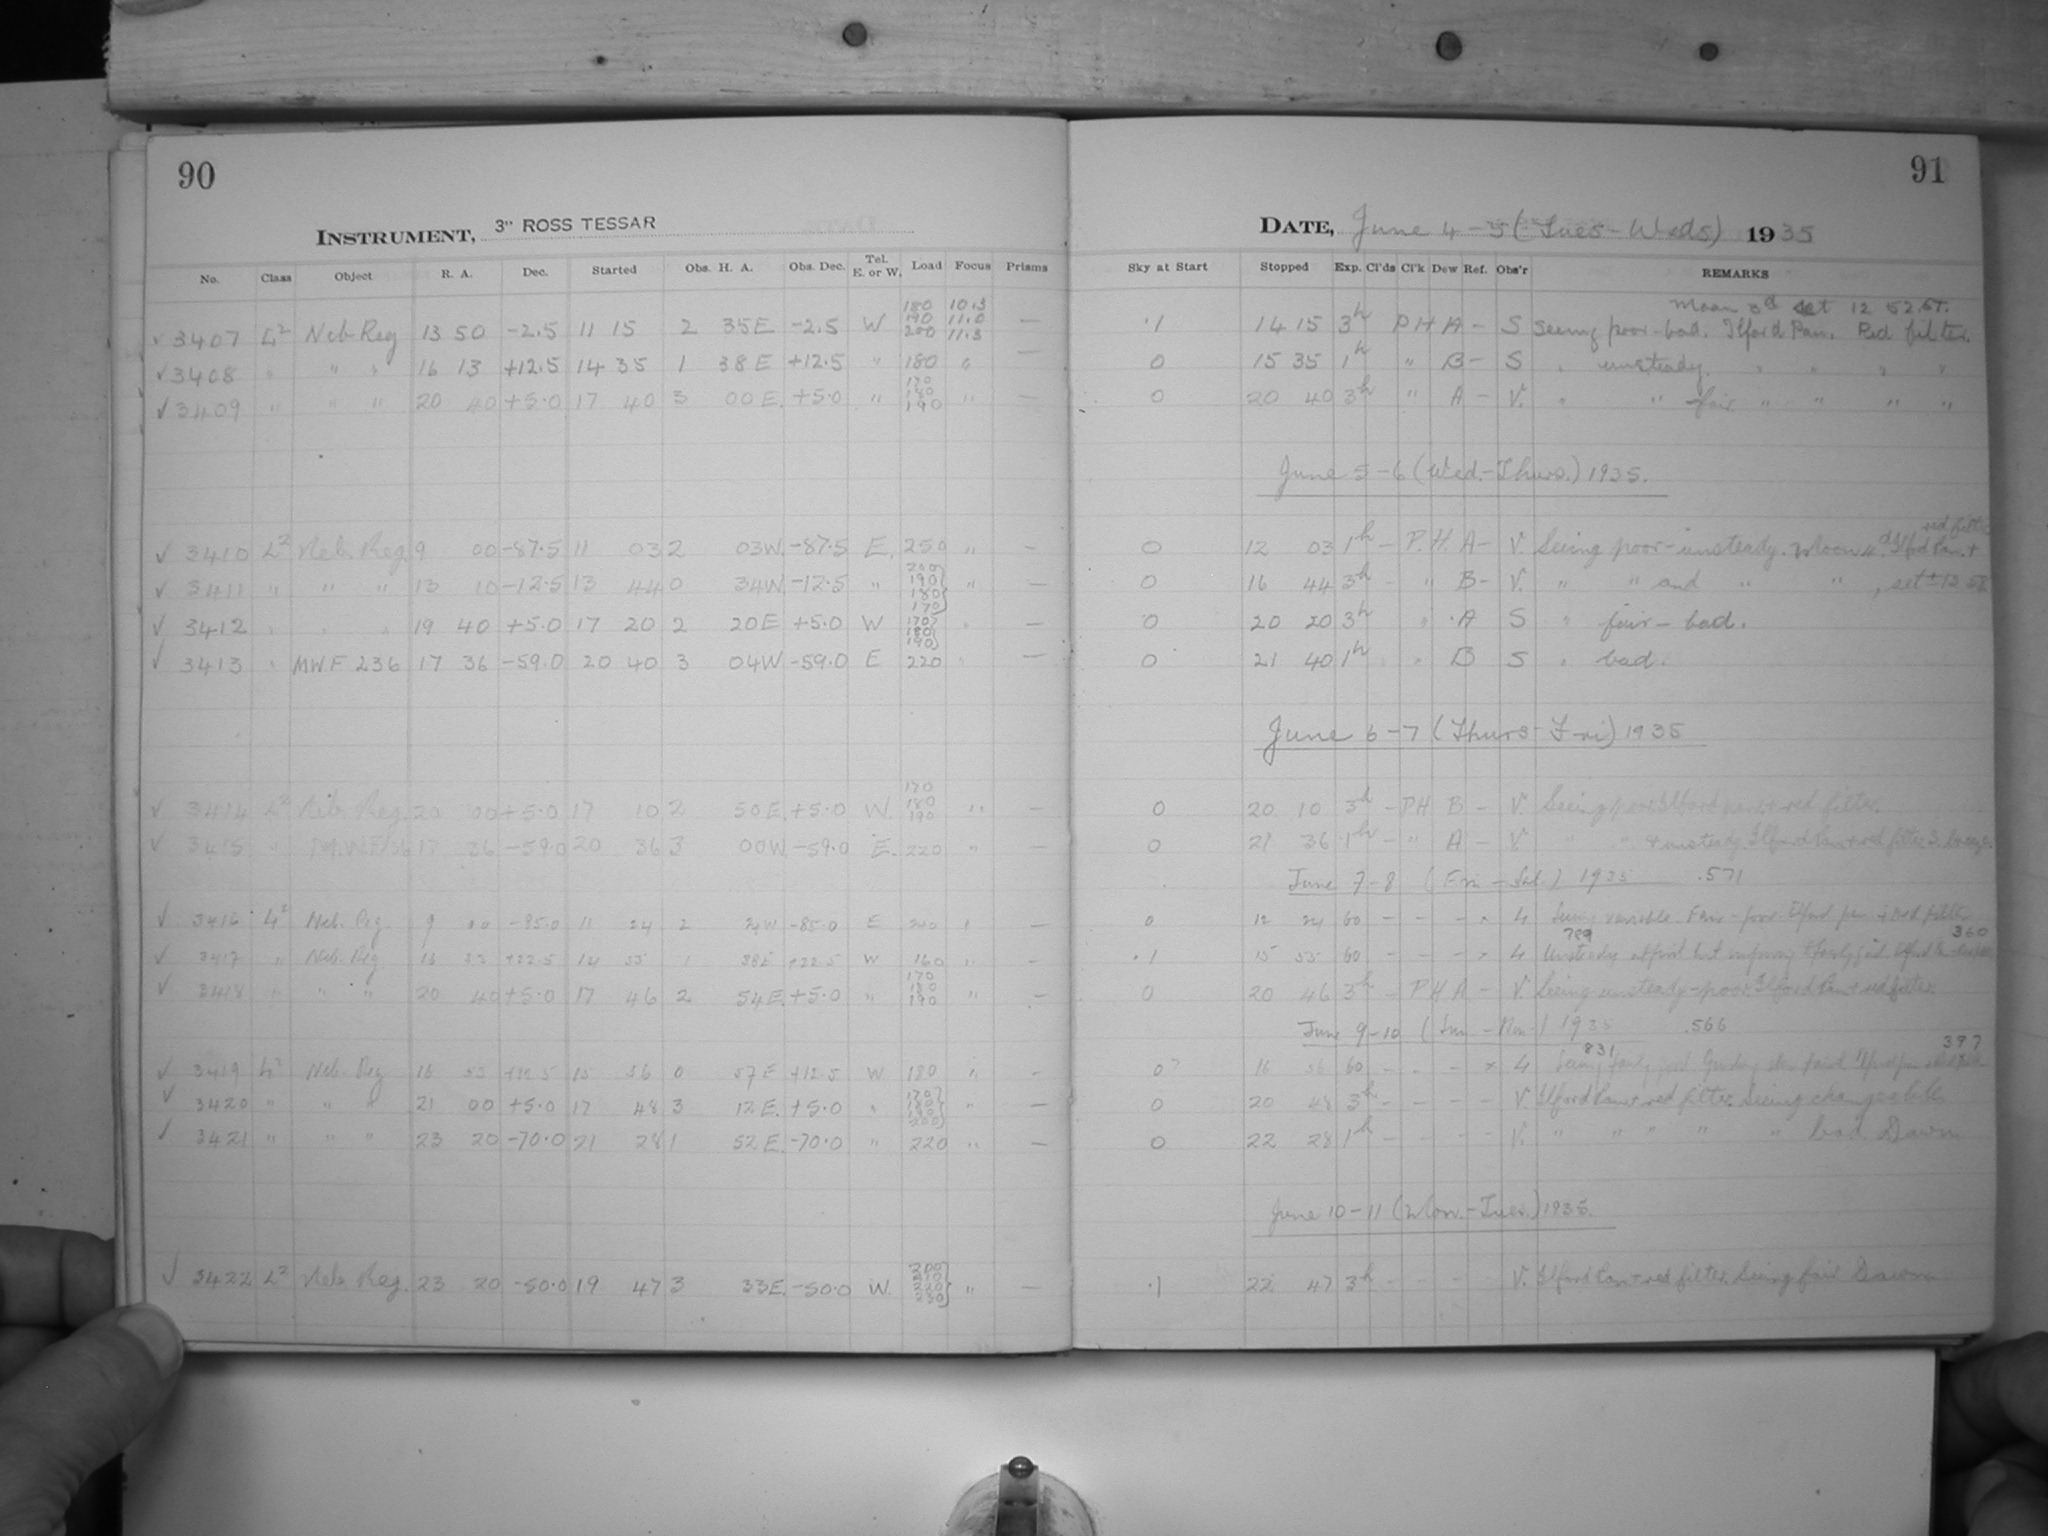 90
INSTRUMENT, 3" ROSS TESSAR
No. Class Object R. A. Dec. Started Obs. H. A. Obs. Dec. Tel. E. or W. Load Focus Prisms
✓ 3407 L² Neb. Reg 13 50 -2.5 11 15 2 35E -2.5 W 180 190 200 10.3 11.0 11.3 —
✓ 3408 " " " 16 13 +12.5 14 35 1 38E +12.5 " 180 " —
✓ 3409 " " " 20 40 +5.0 17 40 3 00E. +5.0 " 170 180 190 " —
✓ 3410 L² Neb. Reg. 9 00 -87.5 11 03 2 03W. -87.5 E. 250 " —
✓ 3411 " " " 13 10 -12.5 13 44 0 34W. -12.5 " 200 190 180 170 " —
✓ 3412 " " " 19 40 +5.0 17 20 2 20E +5.0 W 170 180 190 " —
✓ 3413 " MWF 236 17 36 -59.0 20 40 3 04W -59.0 E 220 " —
✓ 3414 L² Neb. Reg. 20 00 +5.0 17 10 2 50E +5.0 W. 170 180 190 " —
✓ 3415 " 17 36 -59.0 20 36 3 00W. -59.0 E. 220 " —
✓ 3416 L² Neb. Reg. 9 00 -85.0 11 24 2 24W -85.0 E —
✓ 3417 " Neb. Reg 14 55 1 38E +22.5 W 160 " —
✓ 3418 " " " 20 40 +5.0 17 46 2 54E. +5.0 " 170 180 190 " —
✓ 3419 L² Neb. Reg 15 56 0 57E +12.5 W 180 " —
✓ 3420 " " " 21 00 +5.0 17 48 3 12E. +5.0 " 170 180 190 200 " —
✓ 3421 " " " 23 20 -70.0 21 28 1 52E. -70.0 " 220 " —
✓ 3422 L² Neb. Reg. 23 20 -50.0 19 47 3 33E. -50.0 W. 200 210 220 230 " —
91
DATE, June 4-5 (Tues-Weds) 1935
Sky at Start Stopped Exp. Cl'ds Cl'k Dew Ref. Obs'r REMARKS
Moon 3d set 12 52. ST.
.1 14 15 3h PH A - S Seeing poor-bad. Ilford Pan. Red filter.
0 15 35 1h " B - S " unsteady. " " " "
0 20 40 3h " A - V. " " fair " " " "
June 5-6 (Wed.-Thurs.) 1935.
red filter
0 12 03 1h - P.H. A - V. Seeing poor-unsteady. Moon 4d. Ilford Pan. +
0 16 44 3h - " B - V. " " and " " , set ± 13 58
0 20 20 3h " A S " fair - bad.
0 21 40 1h " B S " bad.
June 6-7 (Thurs-Fri) 1935
0 20 10 3h - PH B - V. Seeing poor. Ilford pan. + red filter.
0 21 36 1h - " A - V. " " & unsteady. Ilford Pan + red filter. S. breeze.
June 7-8 (Fri - Sat.) 1935 .571
0 12 24 60 - - - × 4 Seeing variable. Fair - poor. Ilford pan + Red filter
799 360
.1 15 55 60 - - - × 4 Unsteady at first but improving
0 20 46 3h - PH A - V. Seeing unsteady-poor. Ilford Pan + red filter.
June 9-10 (Sun - Mon) 1935 .566
831 397
0? 16 56 60 - - - × 4 Seeing fairly good. Guiding star faint.
0 20 48 3h - - - - V. Ilford Pan + red filter. Seeing changeable.
0 22 28 1h - - - - V. " " " " " bad. Dawn.
June 10-11 (Mon.-Tues.) 1935.
.1 22 47 3h - - - V. Ilford Pan + red filter. Seeing fair. Dawn